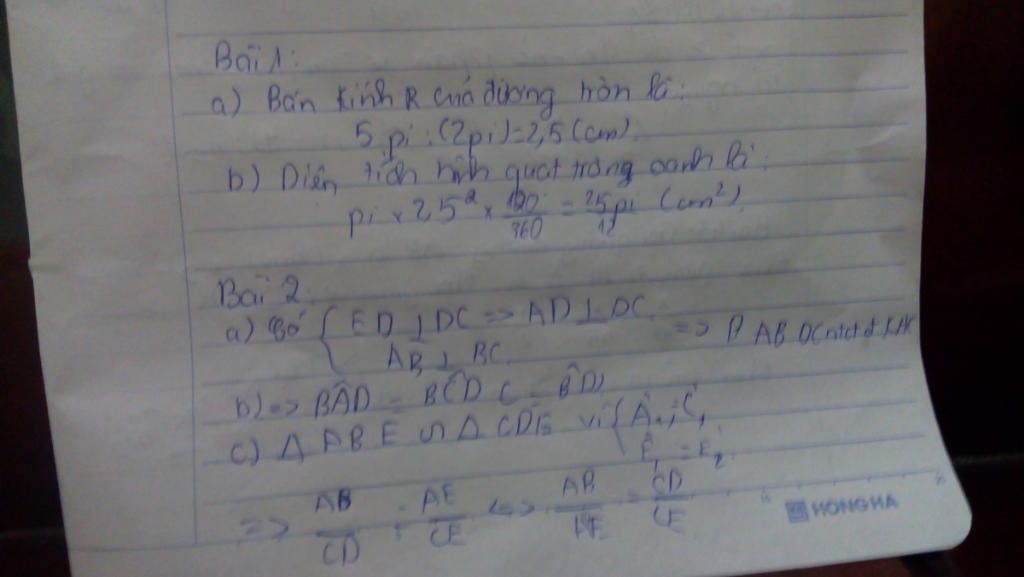 Bài 1:
a) Bán kính R của đường tròn là:
5 pi : (2pi) = 2,5 (cm)
b) Diện tích hình quạt tròng oanh là:
pi x 2,5² x 120/360 = 25pi/12 (cm²)
Bài 2
a) Có { ED ⊥ DC => AD ⊥ DC
AB ⊥ BC => ABDC ntct đ KAK
b) => BÂD = BCD
c) Δ ABE ∽ Δ CDE vì { Â₁ = Ĉ₁
Ê₁ = E₂
=> AB/CD = AE/CE <=> AB/AE = CD/CE
HONG HA